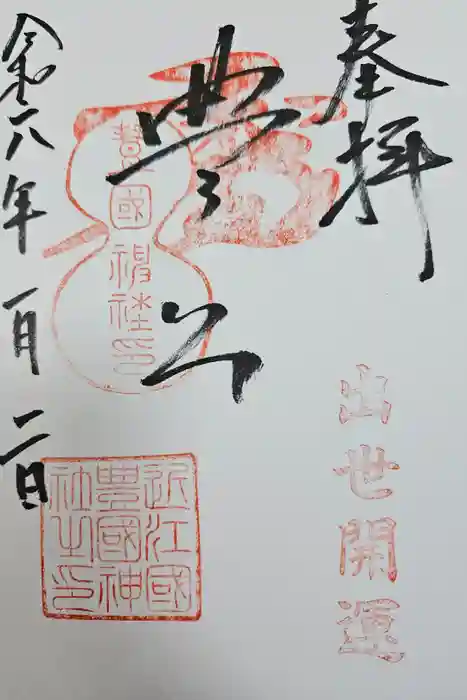 奉拝
出世開運
豊公
豊國神社印
近江國
豊國神
社之印
令和六年一月二日